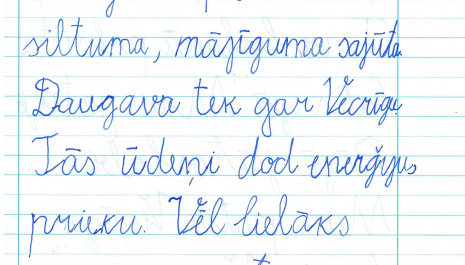 siltuma, mājīguma sajūta
Daugava tek gar Vecrīgu
Tās ūdeņi dod enerģijus
prieku. Vēl lielāks